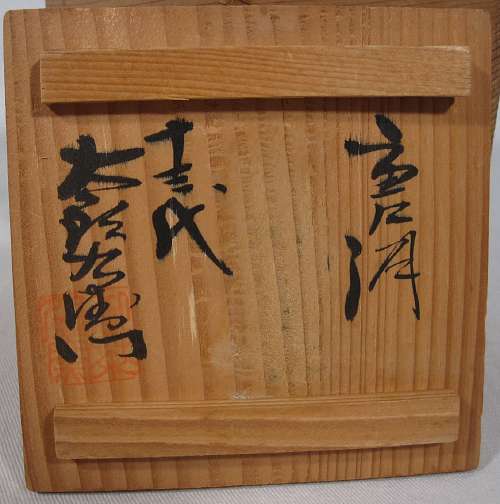 唐津
十三代
太郎右衛門